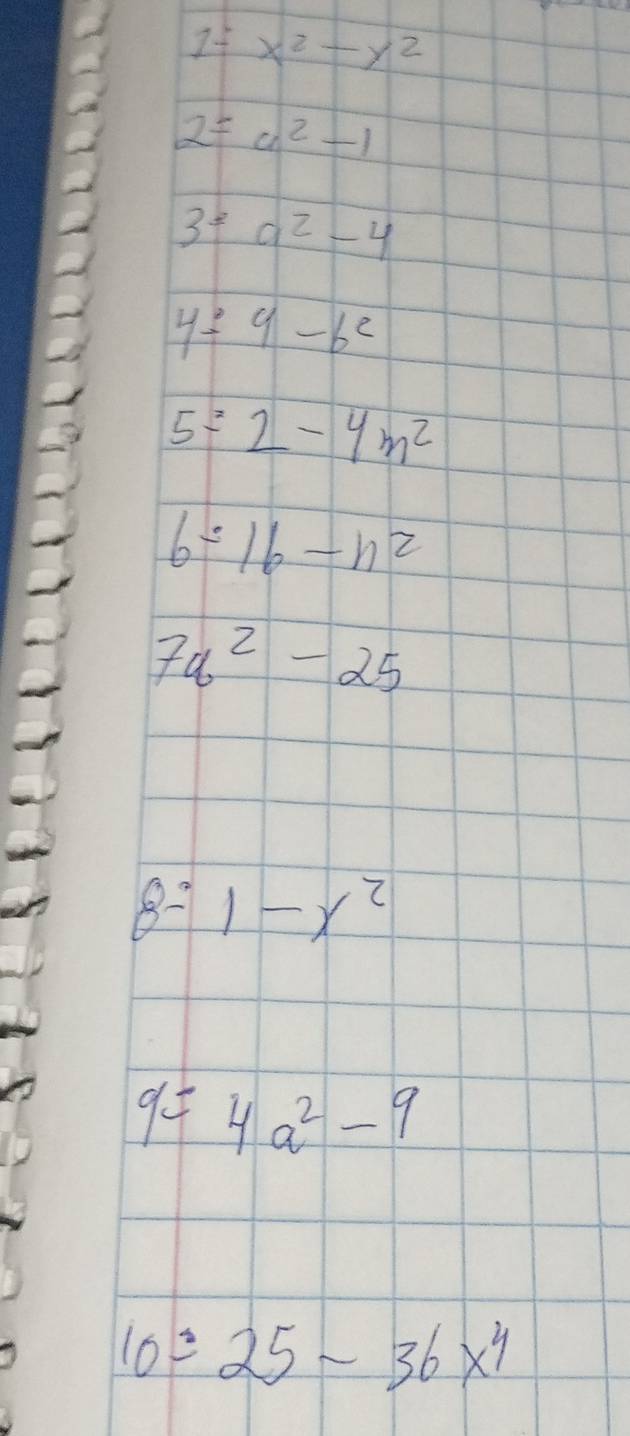 1= x² - y²
2= a² - 1
3= a² - 4
4= 9 - b²
5= 1 - 4m²
6= 16 - n²
7a² - 25
8= 1 - y²
9= 4a² - 9
10= 25 - 36x⁴